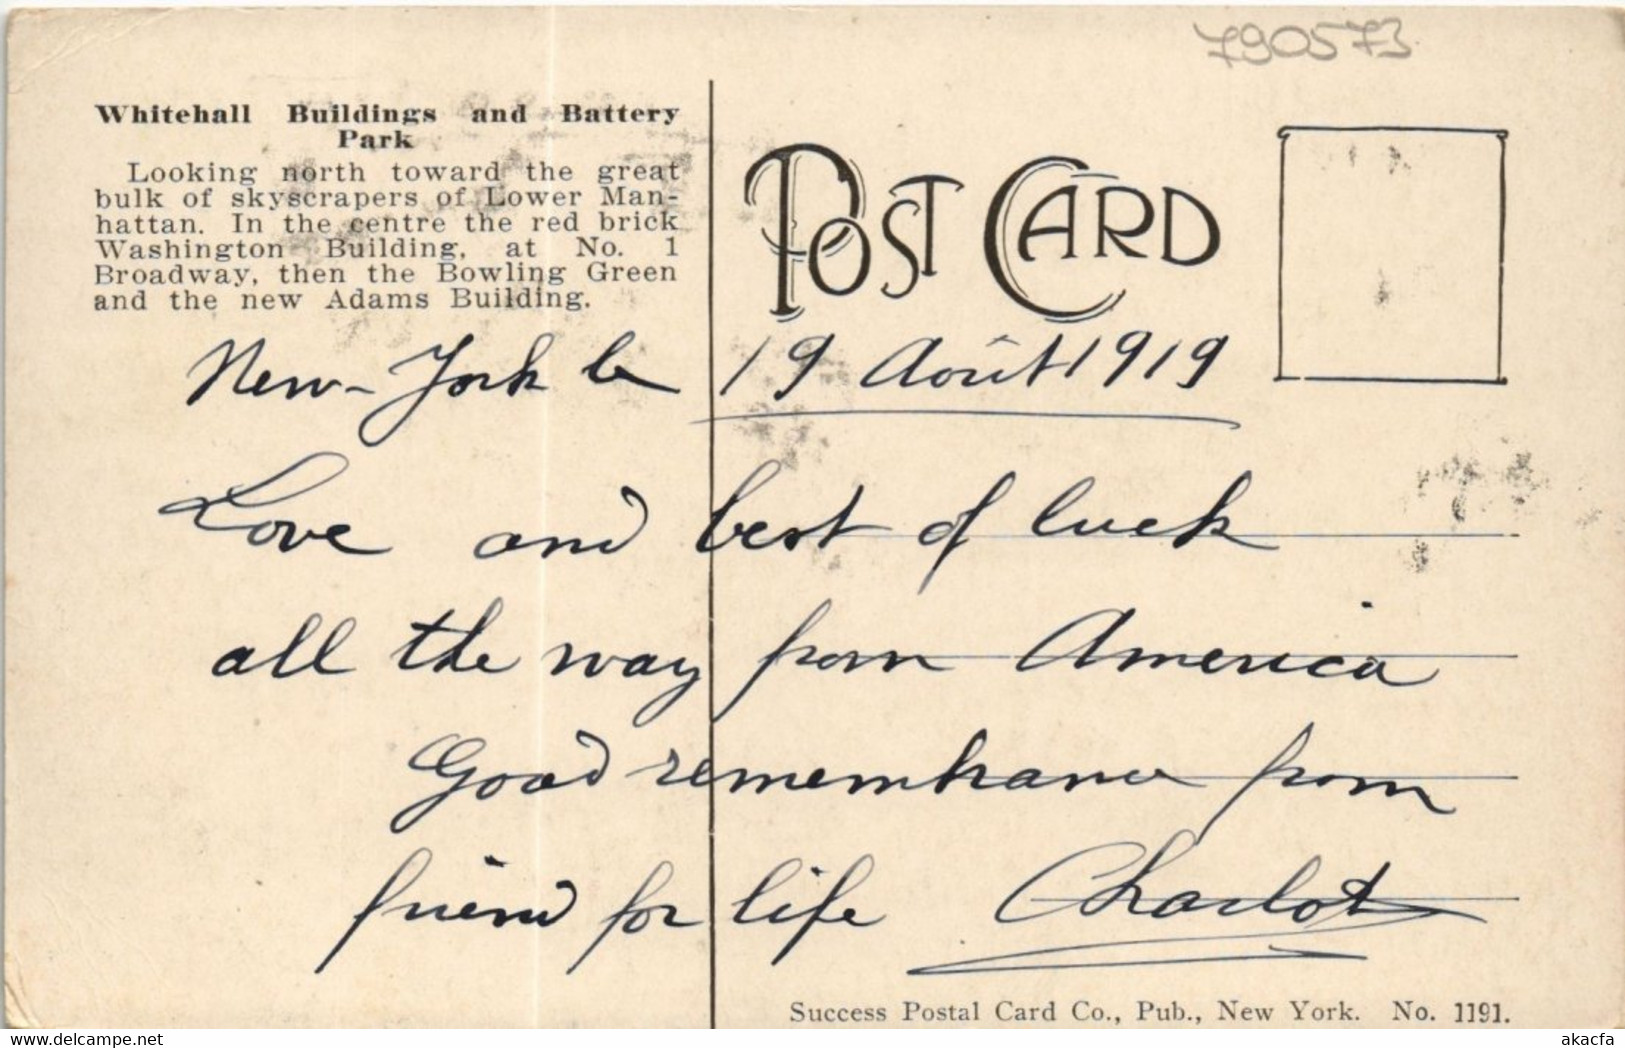 790573
Whitehall Buildings and Battery
Park
Looking north toward the great
bulk of skyscrapers of Lower Man-
hattan. In the centre the red brick
Washington Building, at No. 1
Broadway, then the Bowling Green
and the new Adams Building.
POST CARD
New-York le 19 Août 1919
Love and best of luck
all the way from America
Good remembrance from
friend for life Charlot
Success Postal Card Co., Pub., New York. No. 1191.
akacfa